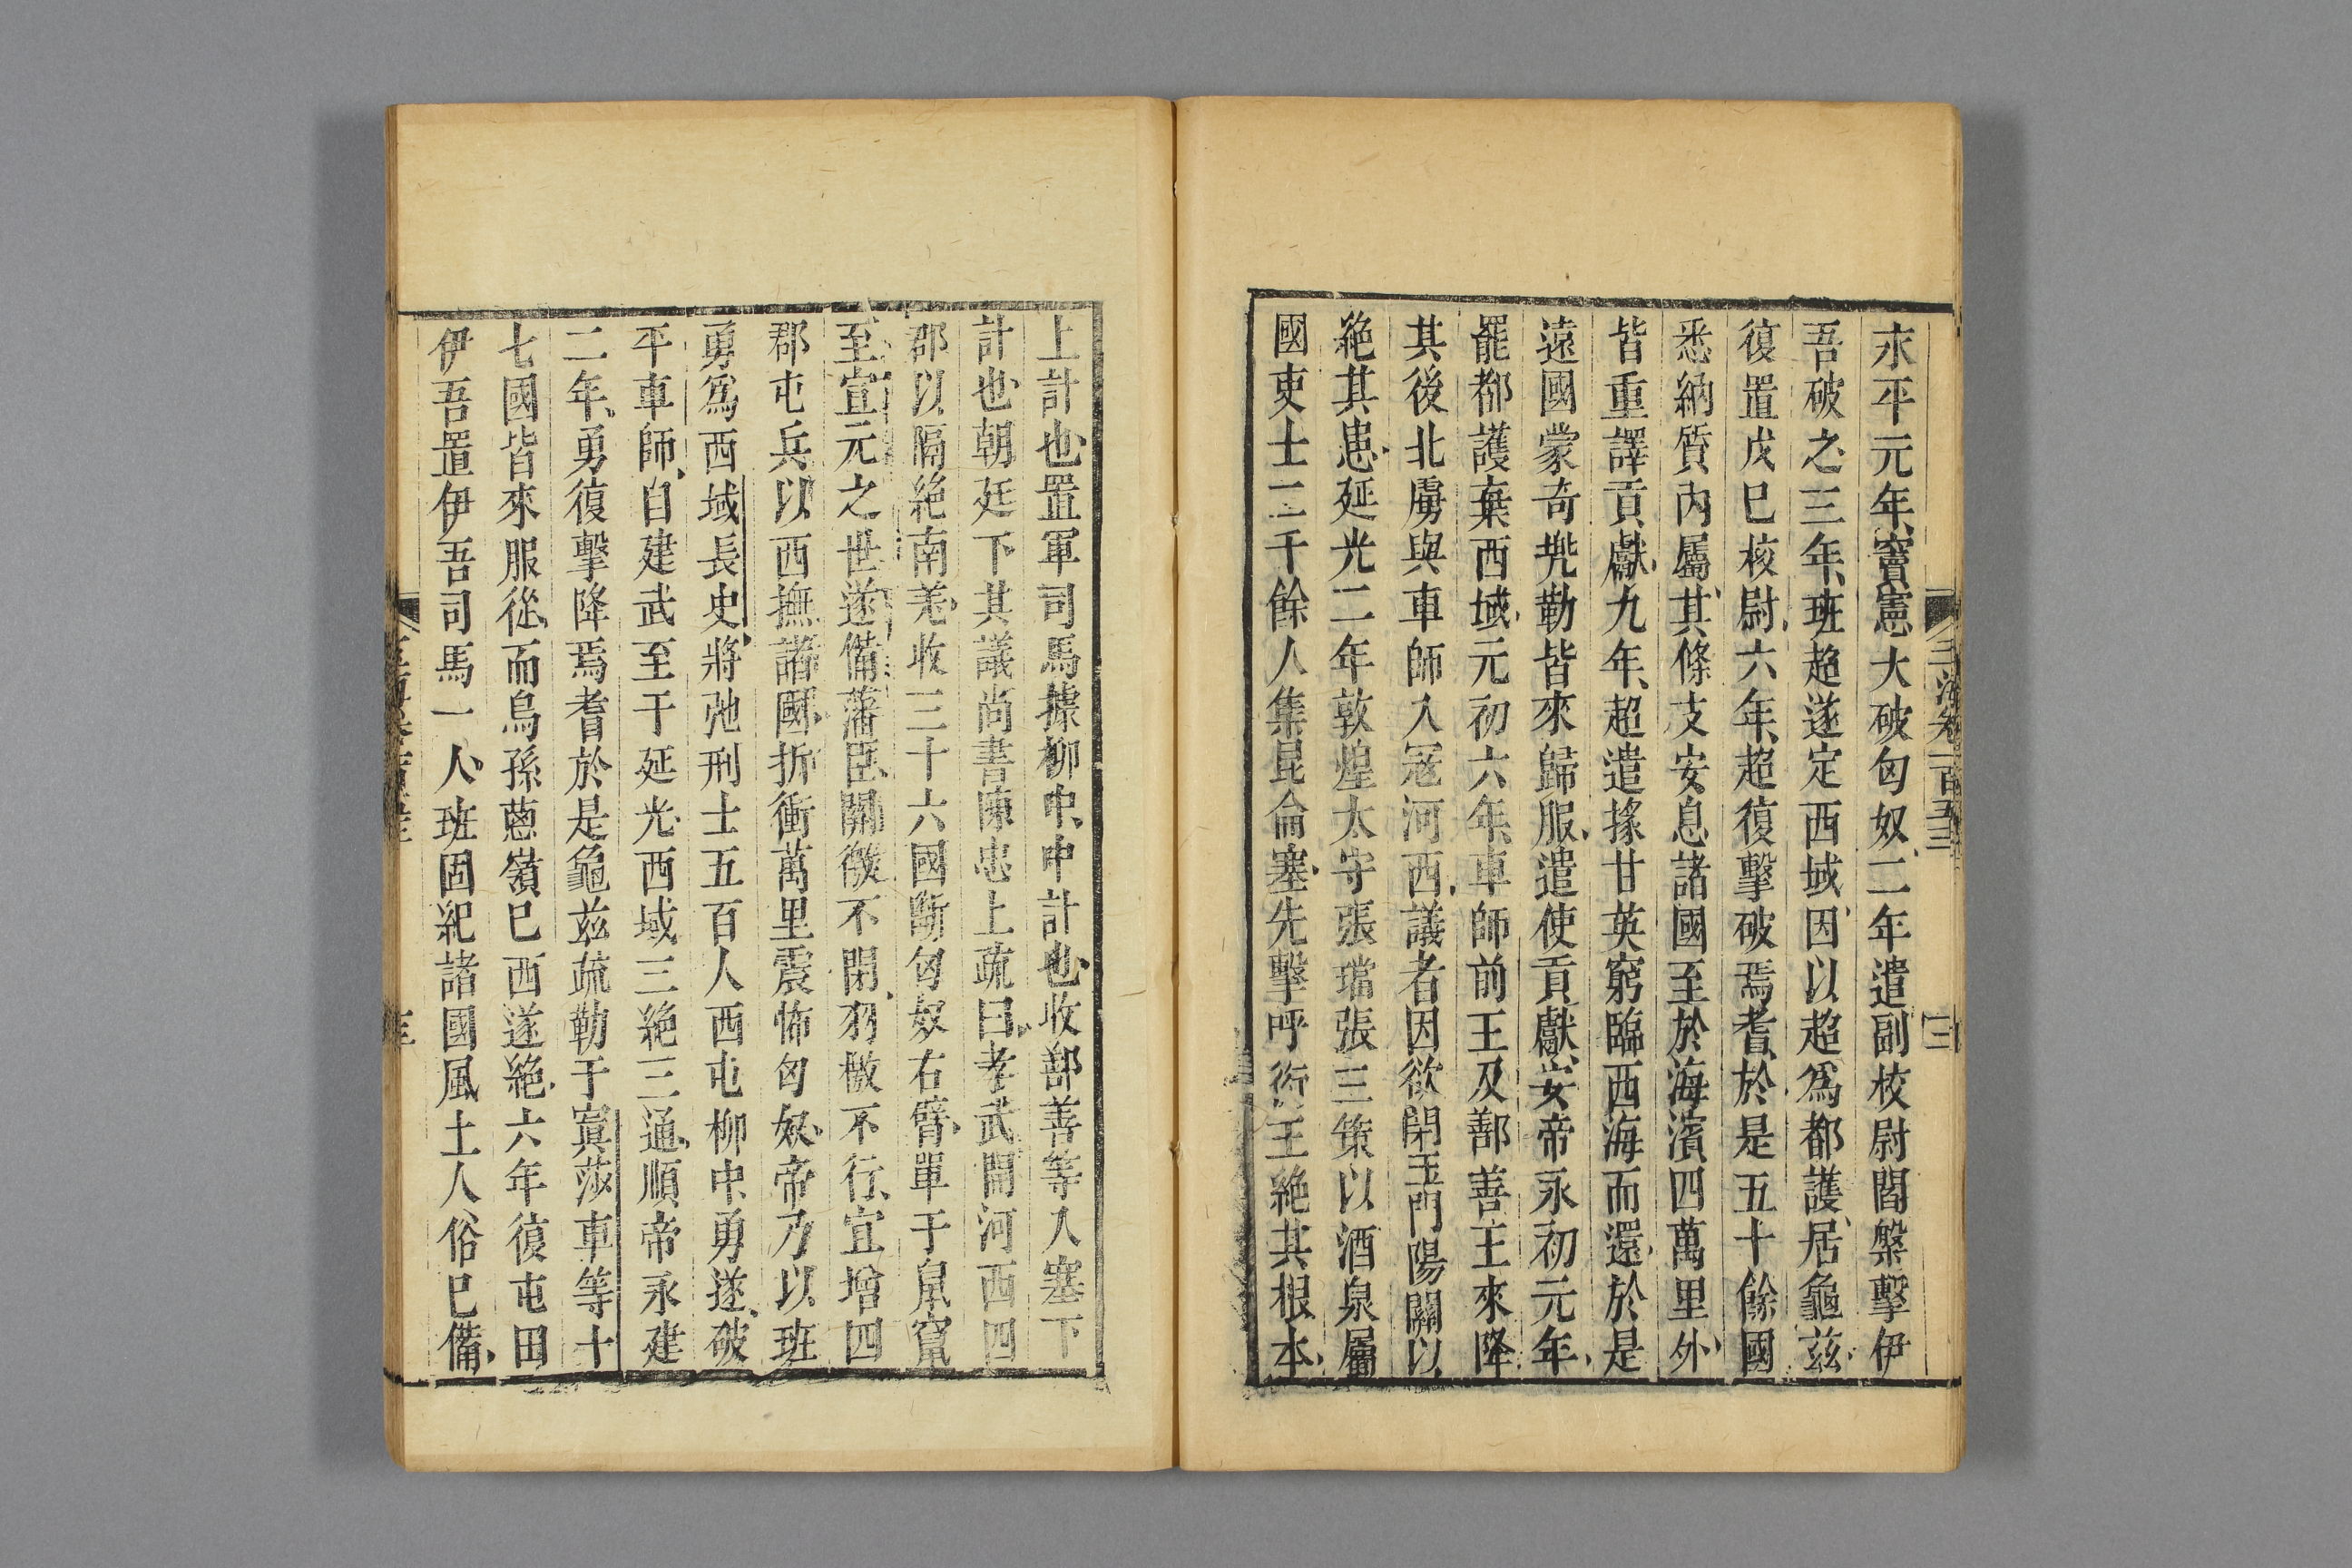 永平元年竇憲大破匈奴二年遣副校尉閻槃擊伊
吾破之三年班超遂定西域因以超爲都護居龜茲
復置戊巳校尉六年超復擊破焉耆於是五十餘國
悉納質內屬其條支安息諸國至於海濱四萬里外
皆重譯貢獻九年超遣掾甘英窮臨西海而還於是
遠國蒙奇兠勒皆來歸服遣使貢獻安帝永初元年
罷都護棄西域元初六年車師前王及鄯善王來降
其後北虜與車師入寇河西議者因欲閉玉門陽關以
絶其患延光二年敦煌太守張璫張三策以酒泉屬
國吏士二千餘人集昆侖塞先擊呼衍王絶其根本
上計也置軍司馬據柳中中計也收鄯善等入塞下
計也朝廷下其議尚書陳忠上疏曰孝武開河西四
郡以隔絶南羌收三十六國斷匈奴右臂單于鼠竄
至宣元之世遂備藩臣關徼不閉羽檄不行宜增四
郡屯兵以西撫諸國折衝萬里震怖匈奴帝乃以班
勇爲西域長史將弛刑士五百人西屯柳中勇遂破
平車師自建武至于延光西域三絶三通順帝永建
二年勇復擊降焉耆於是龜茲疏勒于窴莎車等十
七國皆來服從而烏孫蔥嶺巳西遂絶六年復屯田
伊吾置伊吾司馬一人班固紀諸國風土人俗巳備